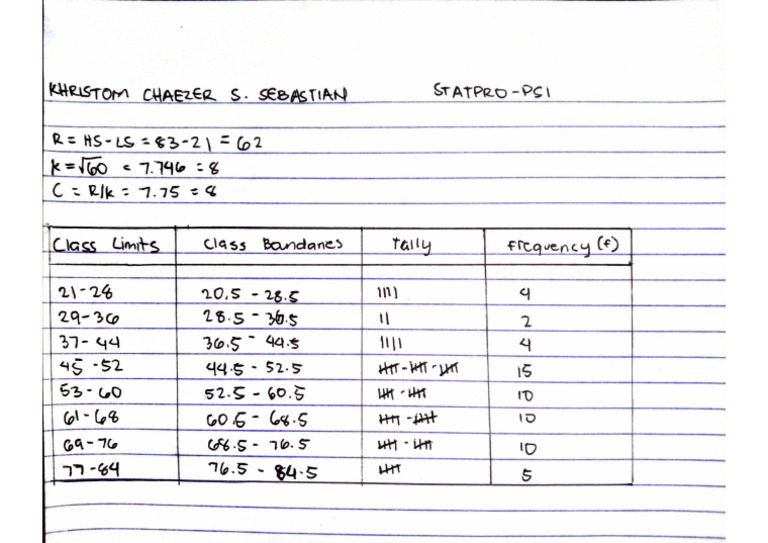 KHRISTOM CHAEZER S. SEBASTIAN STATPRO-PSI
R = HS-LS = 83-21 = 62
K = √60 = 7.746 = 8
C = R/K = 7.75 = 8
Class Limits Class Boundaries Tally Frequency (f)
21-28 20.5 - 28.5 |||| 4
29-36 28.5 - 36.5 || 2
37-44 36.5 - 44.5 |||| 4
45-52 44.5 - 52.5 卌-卌-卌 15
53-60 52.5 - 60.5 卌-卌 10
61-68 60.5 - 68.5 卌-卌 10
69-76 68.5 - 76.5 卌-卌 10
77-84 76.5 - 84.5 卌 5